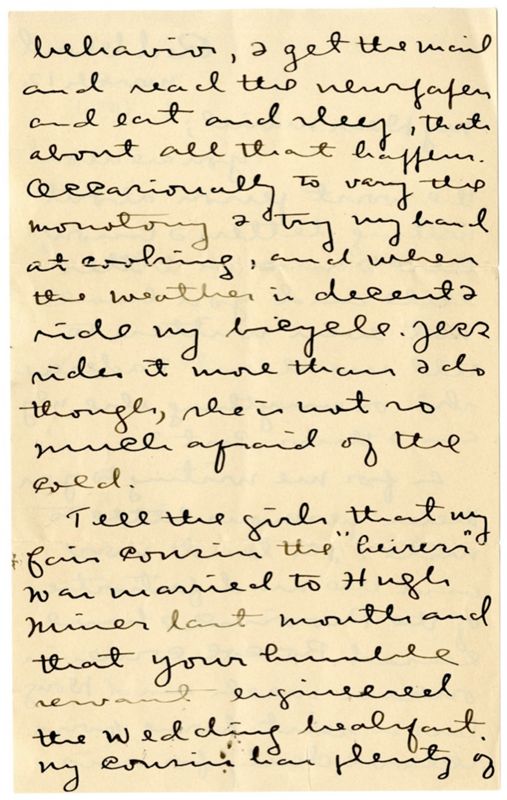 behavior, I get the mail
and read the newspaper
and eat and sleep, thats
about all that happens.
Occasionally to vary the
monotony I try my hand
at cooking, and when
the weather is decent I
ride my bicycle. Jess
rides it more than I do
though, she is not so
much afraid of the
cold.
Tell the girls that my
fair cousin the "heiress"
was married to Hugh
Miner last month and
that your humble
servant engineered
the wedding breakfast.
My cousin has plenty of